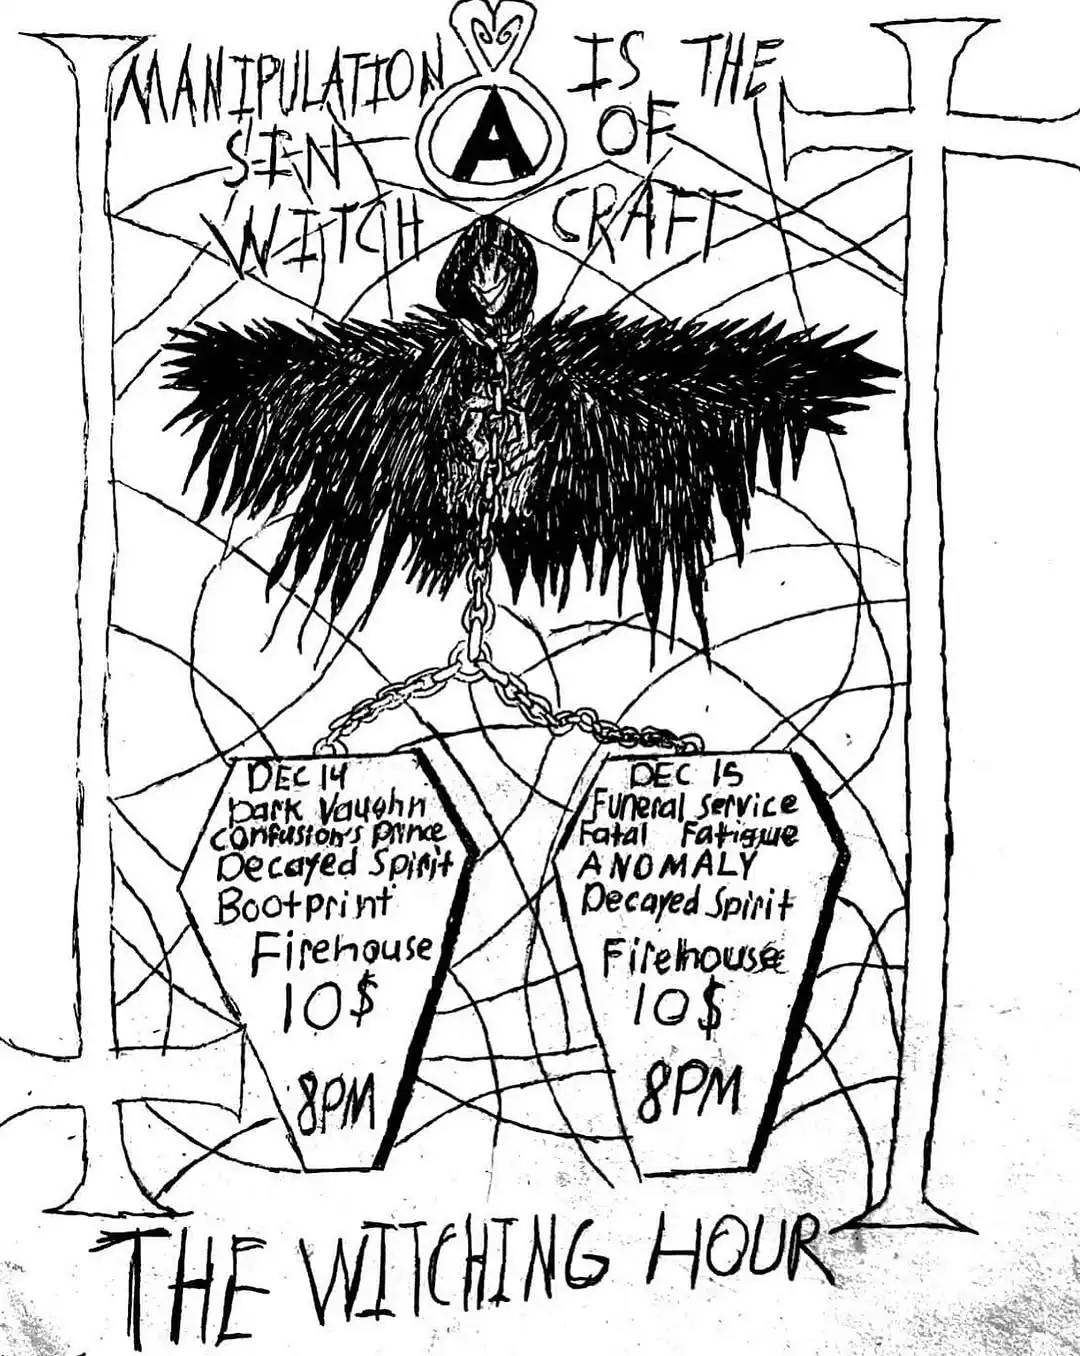 MANIPULATION IS THE
SIN OF
WITCH CRAFT
A
DEC 14
Dark Vaughn
Confusion's Prince
Decayed Spirit
Bootprint
Firehouse
10$
8PM
DEC 15
Funeral Service
Fatal Fatigue
ANOMALY
Decayed Spirit
Firehouse
10$
8PM
THE WITCHING HOUR